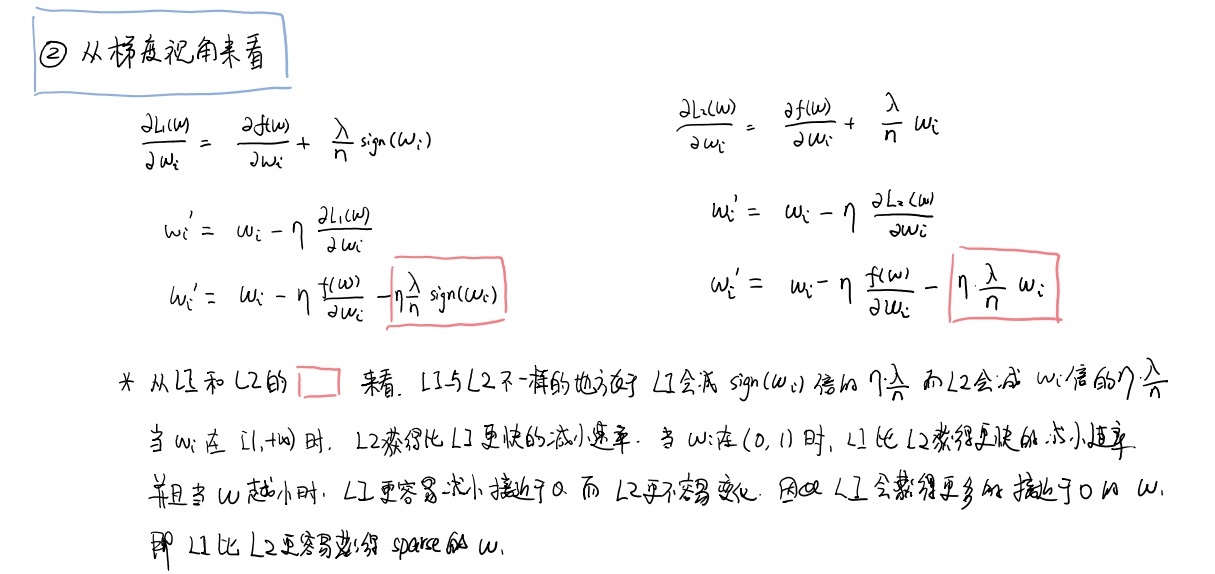 ② 从梯度视角来看
∂L₁(w)/∂wᵢ = ∂f(w)/∂wᵢ + λ/n sign(wᵢ)
wᵢ' = wᵢ - η ∂L₁(w)/∂wᵢ
wᵢ' = wᵢ - η f(w)/∂wᵢ - η λ/n sign(wᵢ)
∂L₂(w)/∂wᵢ = ∂f(w)/∂wᵢ + λ/n wᵢ
wᵢ' = wᵢ - η ∂L₂(w)/∂wᵢ
wᵢ' = wᵢ - η f(w)/∂wᵢ - η·λ/n wᵢ
* 从L1和L2的 来看. L1与L2不一样的地方在于 L1会减 sign(wᵢ) 倍的 η·λ/n 而L2会减 wᵢ倍的η·λ/n
当 wᵢ 在 [1,+∞) 时, L2获得比L1更快的减小速率. 当 wᵢ在(0,1)时, L1比L2获得更快的减小速率
并且当 w 越小时, L1更容易减小接近于0 而L2更不容易变化. 因此 L1会获得更多的接近于0的 w,
即 L1比L2更容易获得 sparse的 w.